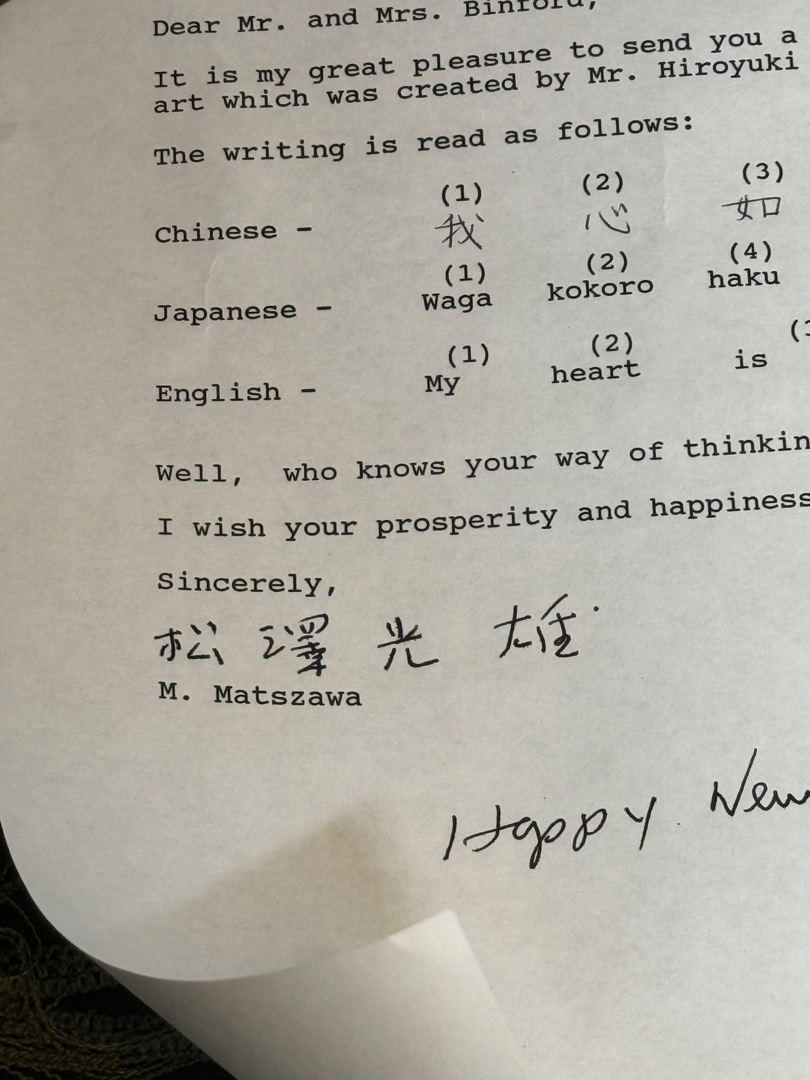 Dear Mr. and Mrs. Binford,
It is my great pleasure to send you a
art which was created by Mr. Hiroyuki
The writing is read as follows:
(1) (2) (3)
Chinese - 我 心 如
(1) (2) (4)
Japanese - Waga kokoro haku
(1) (2)
English - My heart is
Well, who knows your way of thinkin
I wish your prosperity and happiness
Sincerely,
松 澤 光 雄
M. Matszawa
Happy New